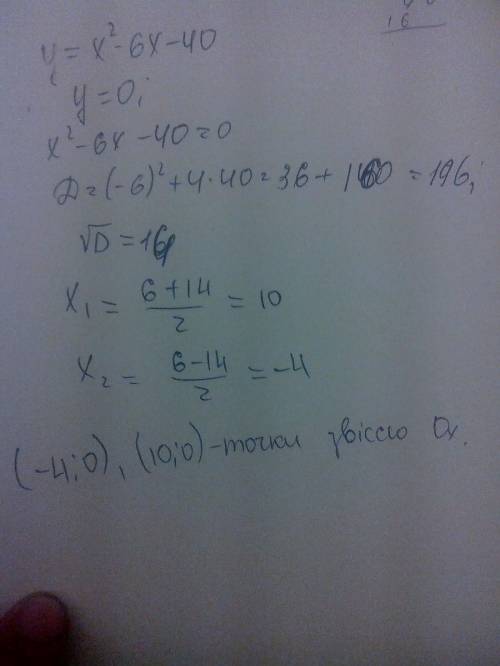 16
y = x² - 6x - 40
y = 0;
x² - 6x - 40 = 0
D = (-6)² + 4·40 = 36 + 160 = 196;
√D = 14
x₁ = (6+14)/2 = 10
x₂ = (6-14)/2 = -4
(-4;0), (10;0) - точки з віссю Ox.